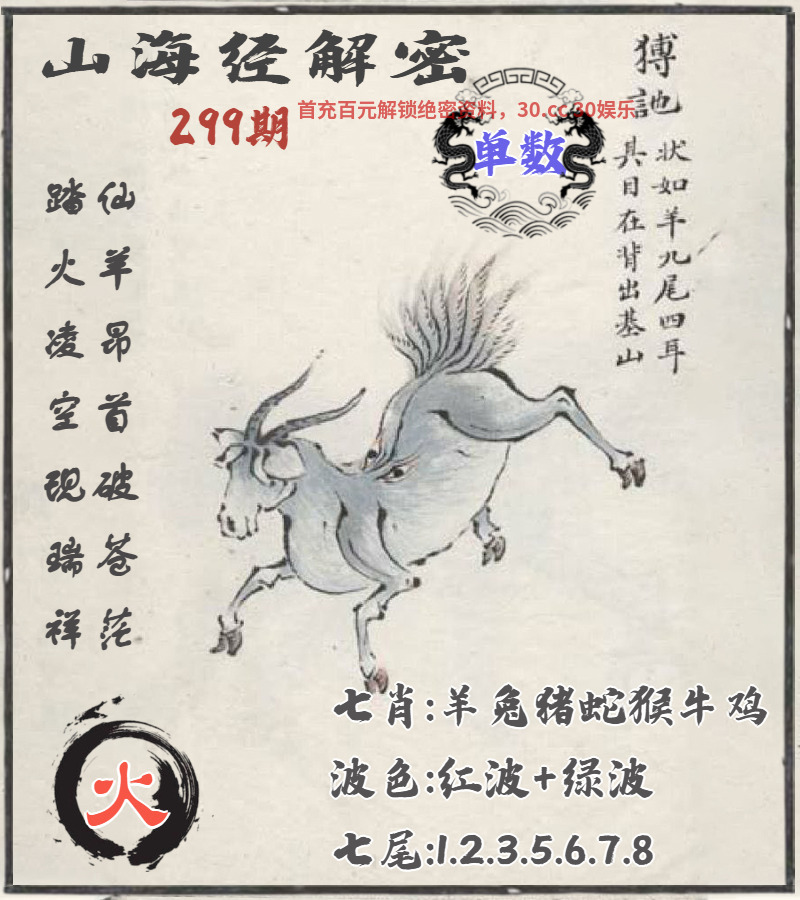 山海经解密
299期
首充百元解锁绝密资料，30.cc 30娱乐
单数
猼訑
状如羊九尾四耳
其目在背出基山
仙羊昂首破苍茫
踏火凌空现瑞祥
火
七肖:羊兔猪蛇猴牛鸡
波色:红波+绿波
七尾:1.2.3.5.6.7.8